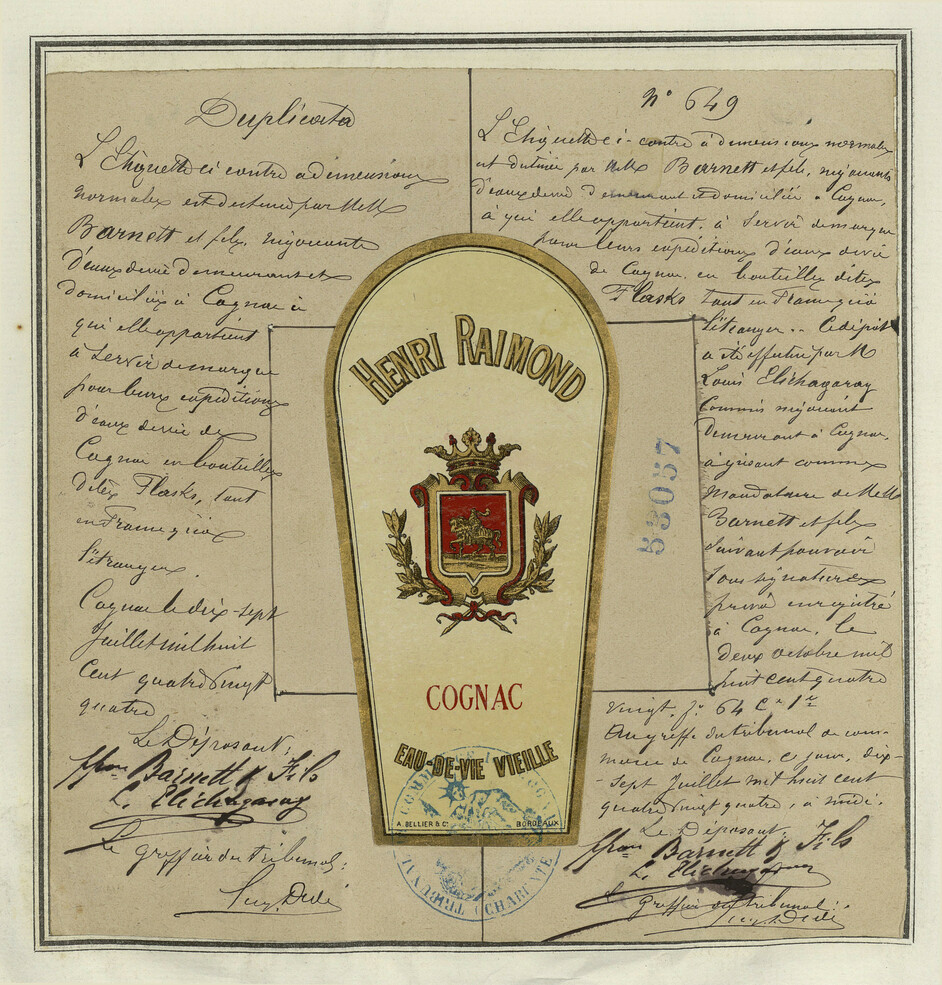 Duplicata
L'Etiquette ci contre a dimensions
normales est destinée par MM
Barnett et fils, négociants
d'eaux de vie demeurant et
domiciliés à Cognac à
qui elle appartient
à servir de marque
pour leurs expéditions
d'eaux de vie de
Cognac en bouteilles
dites Flasks, tant
en France qu'à
l'étranger.
Cognac le dix-sept
Juillet mil huit
Cent quatre vingt
quatre
Le Déposant:
Barnett & Fils
L. Elichagaray
Le greffier du tribunal:
N° 649
L'Etiquette ci-contre à dimensions normales
est destinée par MM Barnett et fils, négociants
d'eaux de vie demeurant et domiciliés à Cognac,
à qui elle appartient, à servir de marque
pour leurs expéditions d'eaux de vie
de Cognac en bouteilles dites
Flasks tant en France qu'à
l'étranger.. Le dépôt
a été effectué par M
Louis Elichagaray
Commis négociant
demeurant à Cognac,
agissant comme
mandataire de MM
Barnett et fils
suivant pouvoir
sous signatures
privé enregistré
à Cognac, le
deux octobre mil
huit cent quatre
vingt, f° 64 C° 1re
Au greffe du tribunal de com-
merce de Cognac, ce jour, dix-
sept Juillet mil huit cent
quatre vingt quatre, à midi.
Le Déposant:
Barnett & Fils
L. Elichagaray
Le greffier du tribunal:
HENRI RAIMOND
COGNAC
EAU-DE-VIE VIEILLE
A. BELLIER & Cie BORDEAUX
55057
TRIBUNAL CHARENTE